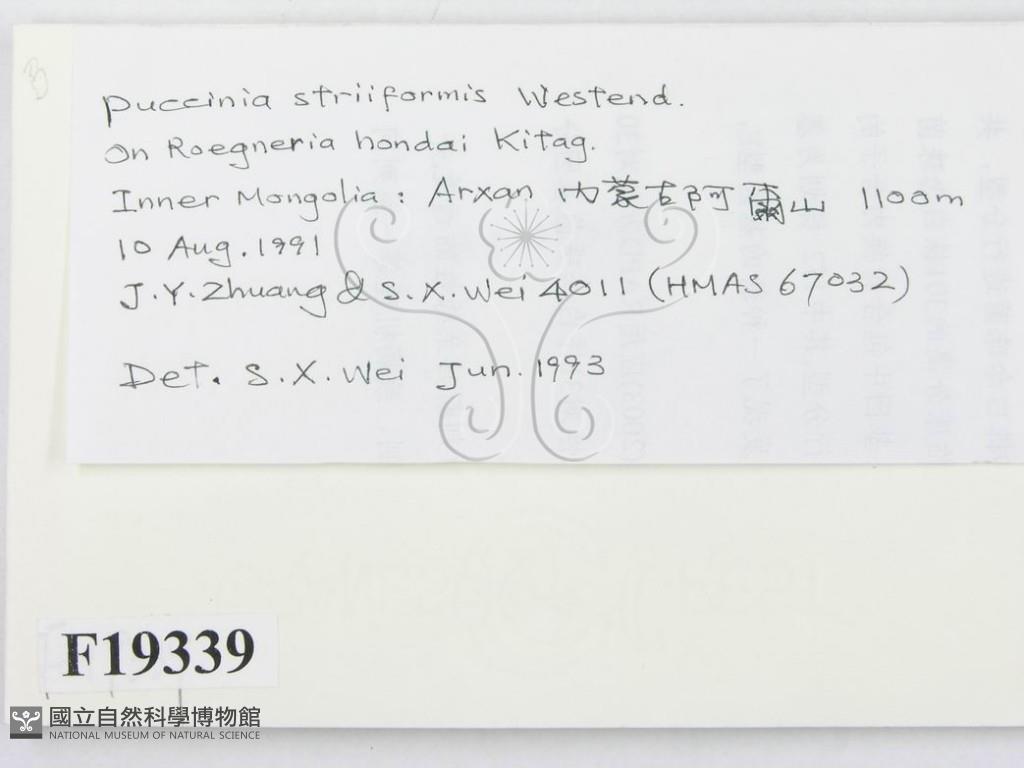 Puccinia striiformis Westend.
On Roegneria hondai Kitag.
Inner Mongolia : Arxan 內蒙古阿爾山 1100m
10 Aug. 1991
J.Y.Zhuang & S.X.Wei 4011 (HMAS 67032)
Det. S.X.Wei Jun. 1993
F19339
國立自然科學博物館
NATIONAL MUSEUM OF NATURAL SCIENCE